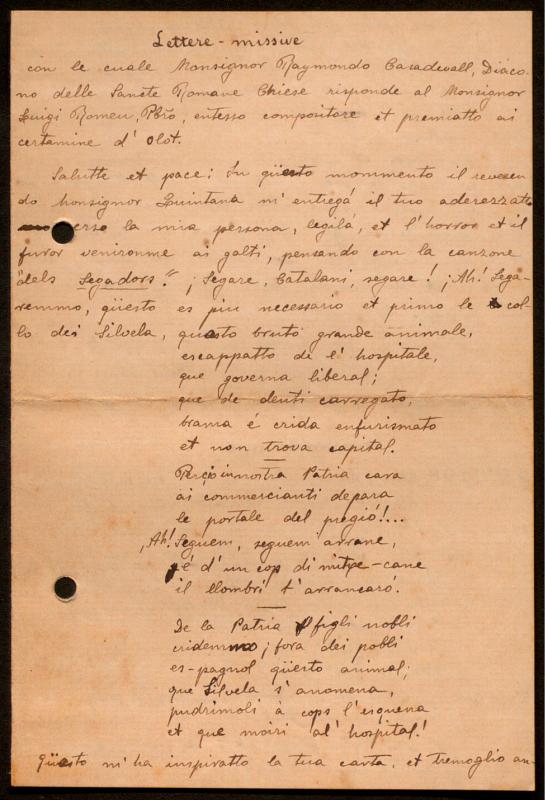 Lettere-missive
con le cuale Monsignor Raymondo Casadevall, Diáco-
no delle Sancte Romane Chiese risponde al Monsignor
Luigi Romeu, Pbro, entesso compositore et premiatto ai
certamine d' Olot.
Salutte et pace: In qüesto mommento il reveren-
do Monsignor Quintana m'entregá il tuo aderezzatto
erso la mia persona, legilá, et l'horror et il
furor venironme ai galti, pensando con la canzone
"dels Segadors". ¡Segare, Catalani, segare! ¡Ah! Sega-
remmo, qüesto es piu necessario et primo le col-
lo dei Silvela, questo bruto grande animale,
escappatto de l' hospitale,
que governa liberal;
que de denti carregato,
brama é crida enfurismato
et non trova capital.
Perço in nostra Patria cara
ai commercianti depara
le portale del pregió!...
¡Ah! Seguem, seguem arrane,
é d'un cop di mitxe-cane
il llombri t'arrancaró.
De la Patria figli nobli
cridemmo; fora dei pobli
es-pagnol qüesto animal;
que Silvela s'anomena,
pudrimoli à cops l'esquena
et que moiri al' hospital!
Qüesto m'ha inspiratto la tua carta, et tremoglio an-